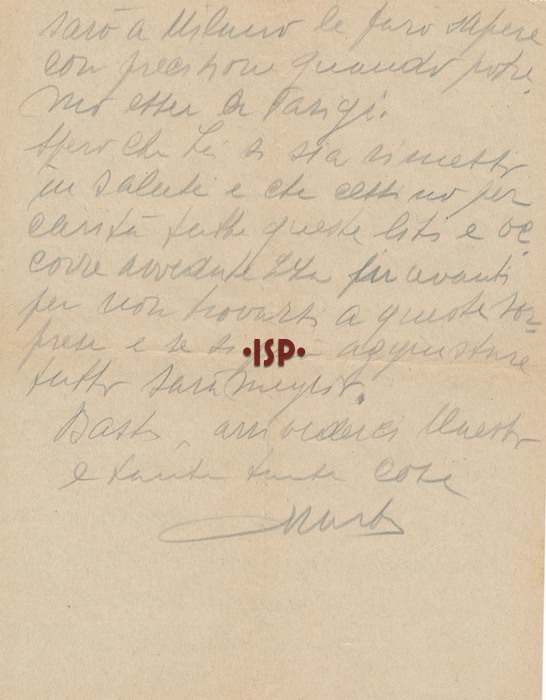 sarò a Milano le farò sapere
con precisione quando potre
mo esser a Parigi.
Spero che Lei si sia rimesso
in salute e che cessino per
carità tutte queste liti e oc
corre avvedutezza in avanti
per non trovarsi a queste sor
prese e se si aggiustare
tutto sarà meglio.
Basta, arrivederci Maestro
e tante tante cose
·ISP·